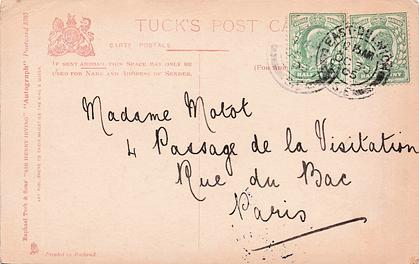 TUCK'S POST CA
CARTE POSTALE
IF SENT ABROAD, THIS SPACE MAY ONLY BE
USED FOR NAME AND ADDRESS OF SENDER.
(FOR
Raphael Tuck & Sons' "SIR HENRY IRVING" "Autograph" Postcard
ART PUBLISHERS TO THEIR MAJESTIES THE KING & QUEEN.
HALF
Madame Motot
4 Passage de la Visitation
Rue du Bac
Paris